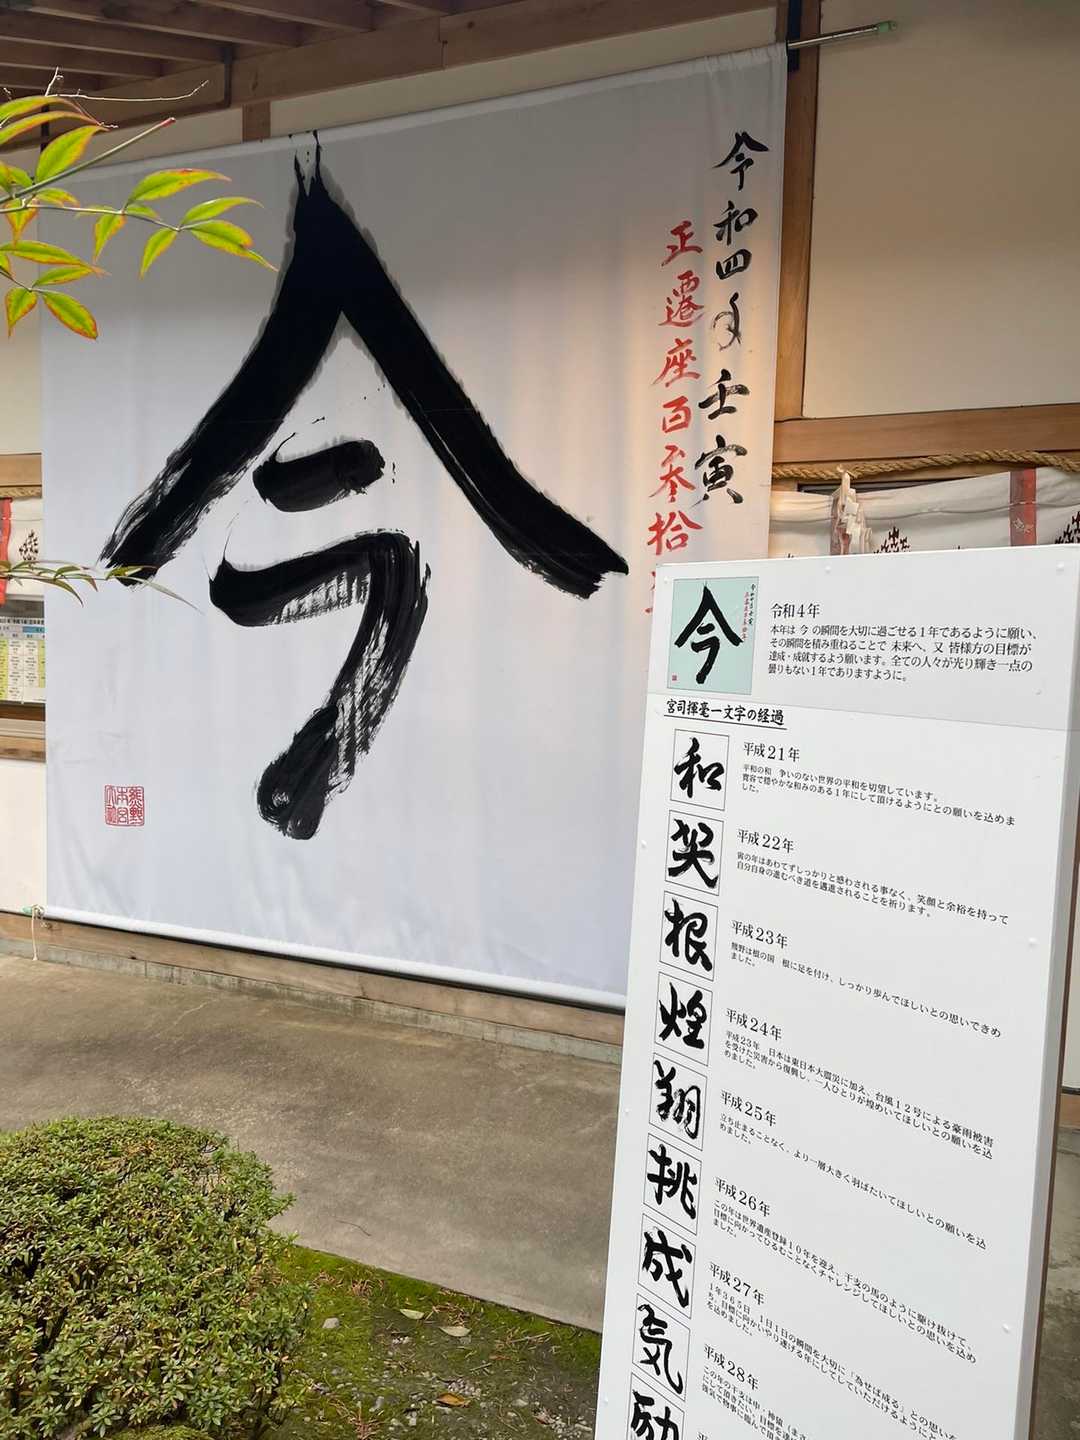 今
令和四年壬寅
正遷座百参拾
熊野本宮大社
今
令和4年
本年は 今 の瞬間を大切に過ごせる1年であるように願い、
その瞬間を積み重ねることで 未来へ、又 皆様方の目標が
達成・成就するよう願います。全ての人々が光り輝き一点の
曇りもない1年でありますように。
宮司揮毫一文字の経過
和
平成21年
平和の和　争いのない世界の平和を切望しています。
寛容で穏やかな和みのある1年にして頂けるようにとの願いを込めま
した。
笑
平成22年
寅の年はあわてずしっかりと惑わされる事なく、笑顔と余裕を持って
自分自身の進むべき道を邁進されることを祈ります。
根
平成23年
熊野は根の国　根に足を付け、しっかり歩んでほしいとの思いできめ
ました。
煌
平成24年
平成23年　日本は東日本大震災に加え、台風12号による豪雨被害
を受けた災害から復興し、一人ひとりが煌めいてほしいとの願いを込
めました。
翔
平成25年
立ち止まることなく、より一層大きく羽ばたいてほしいとの願いを込
めました。
挑
平成26年
この年は世界遺産登録10年を迎え、干支の馬のように駆け抜けて、
目標に向かってひるむことなくチャレンジしてほしいとの思いを込め
ました。
成
平成27年
1年365日　1日1日の瞬間を大切に「為せば成る」との思い
ち、目標に向かいやり遂げる年にしていただけるようにと
を込めました。
気
平成28年
この年の干支は申・神猿（まさ
にして頂きたい、目標を達
強気で物事に臨んで頂
励